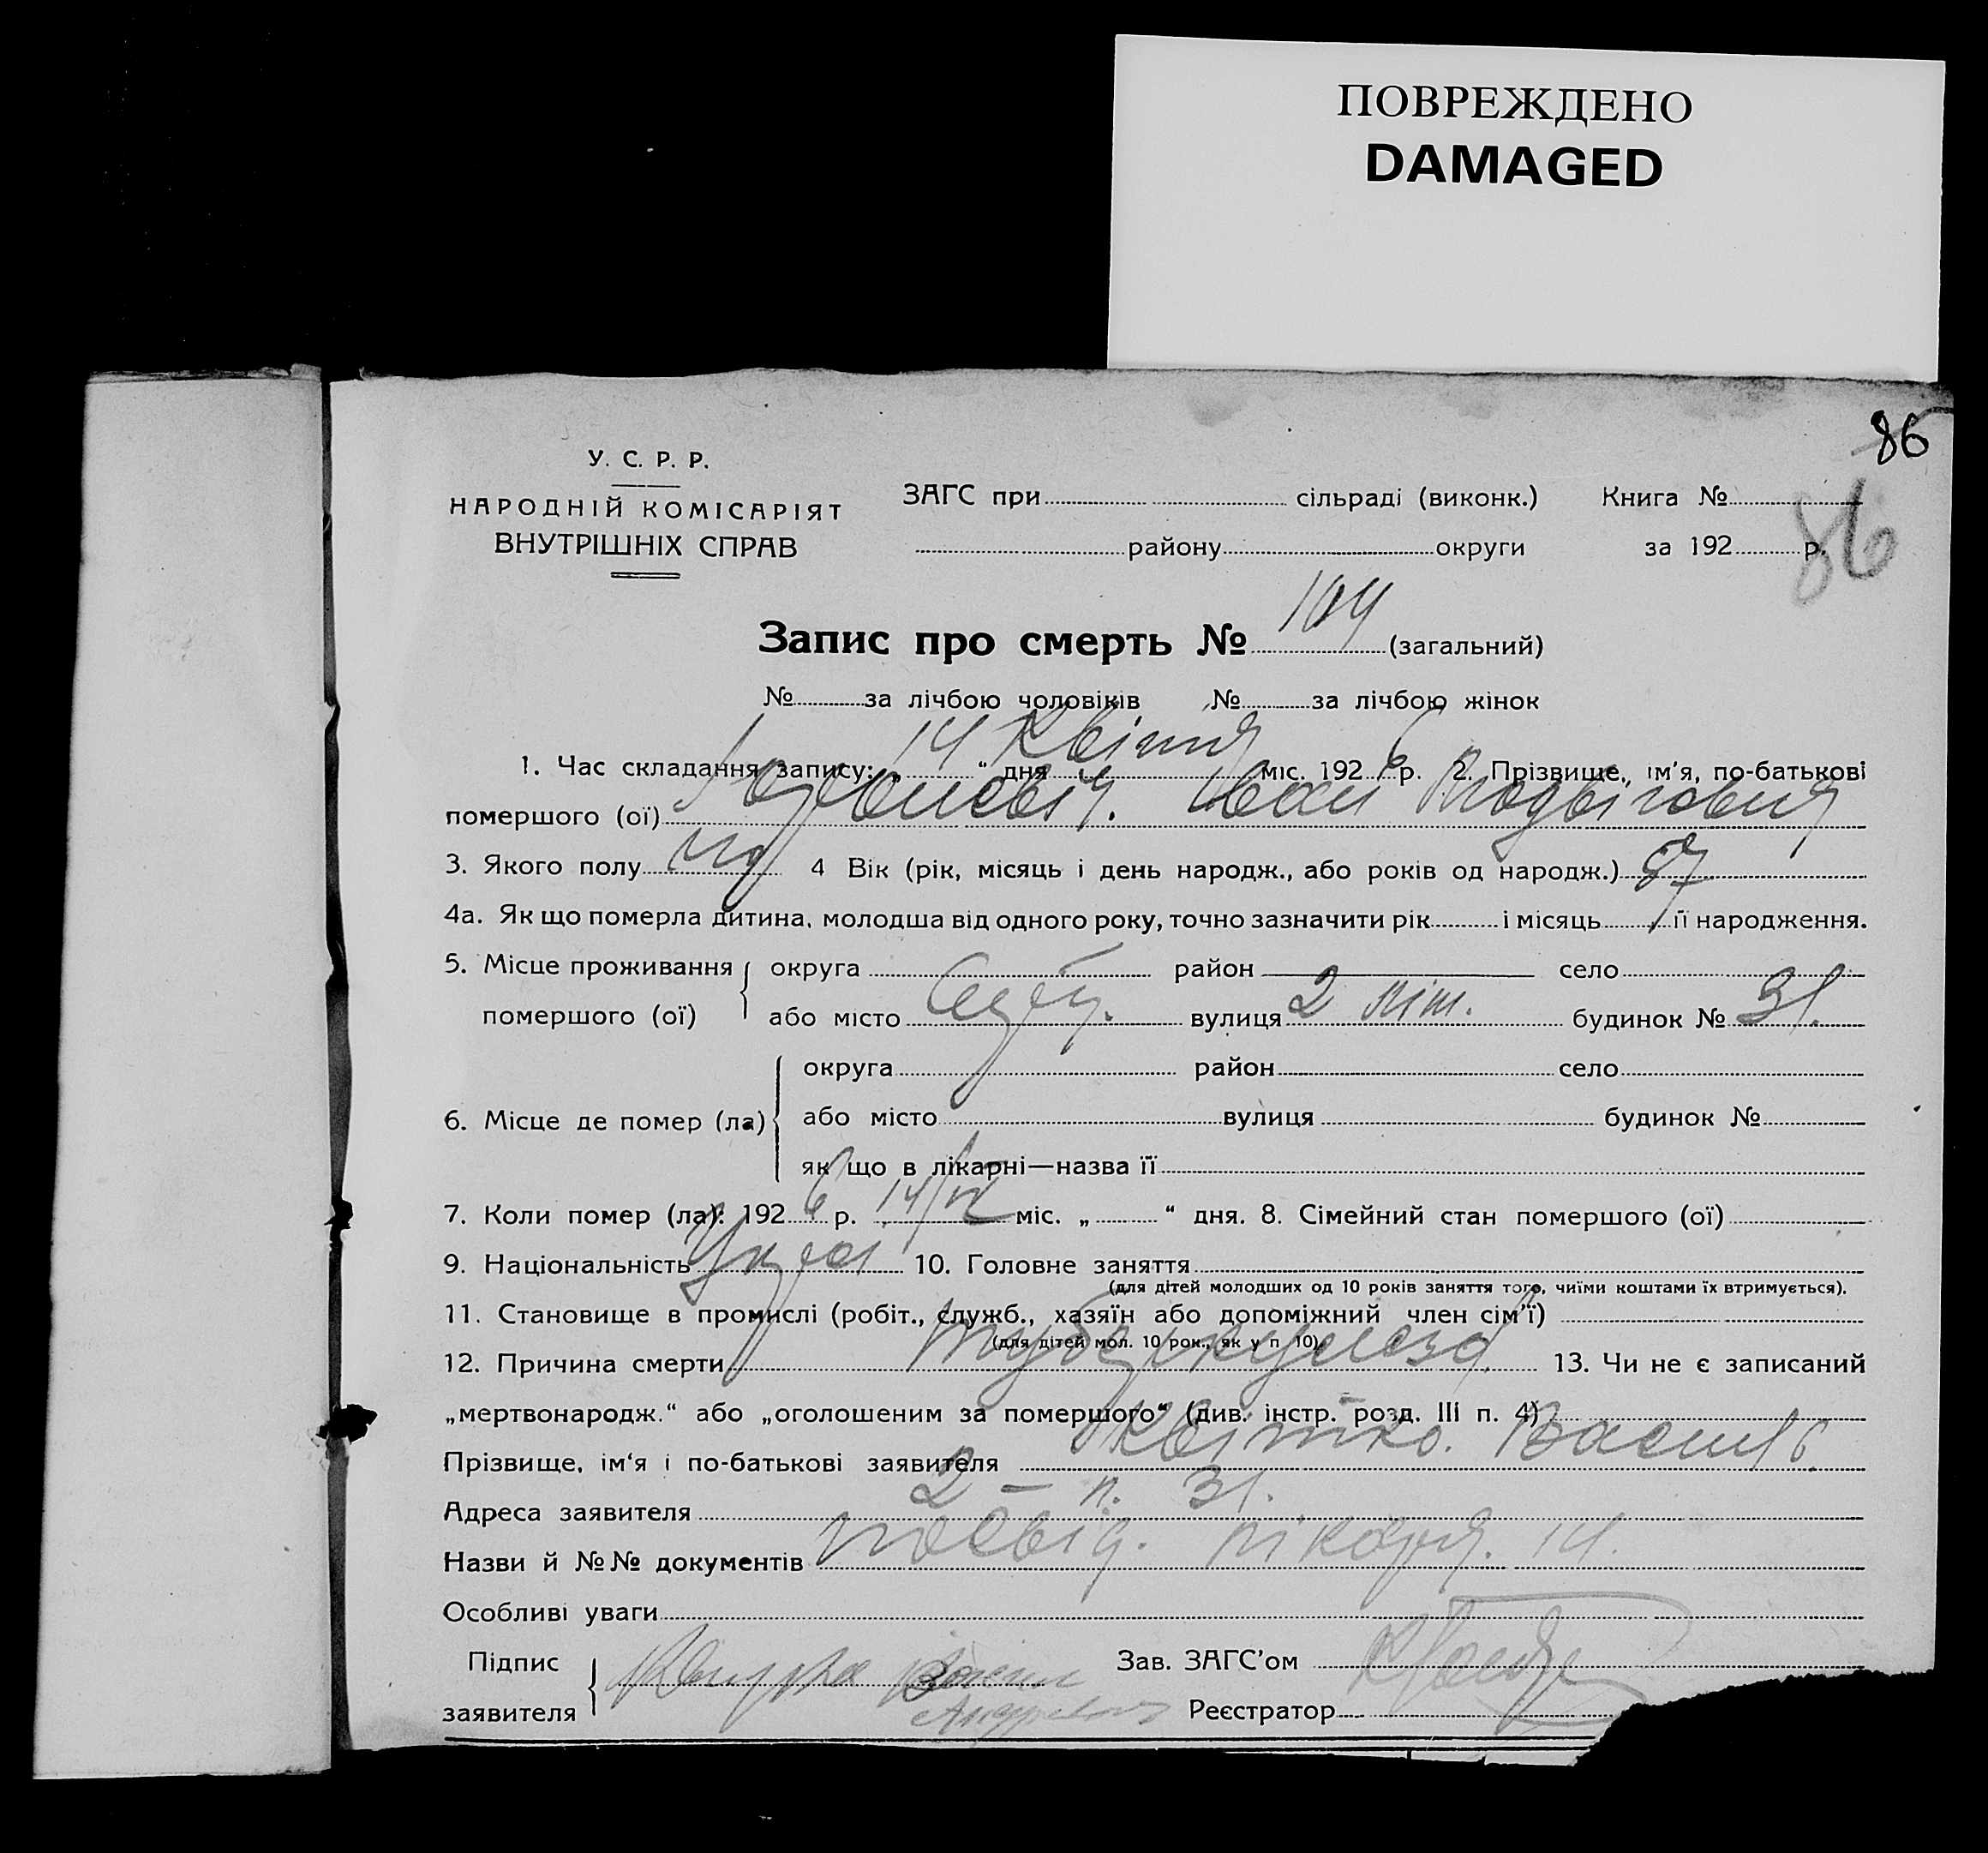 ПОВРЕЖДЕНО
DAMAGED
86
У. С. Р. Р.
НАРОДНІЙ КОМІСАРІЯТ
ВНУТРІШНІХ СПРАВ
ЗАГС при сільраді (виконк.) Книга №
району округи за 192 р.
86
Запис про смерть № 104 (загальний)
№ за лічбою чоловіків № за лічбою жінок
1. Час складання запису: „14“ дня Квітня міс. 1926 р. 2. Прізвище, ім'я, по-батькові
помершого (ої) Іван
3. Якого полу 4 Вік (рік, місяць і день народж., або років од народж.) 57
4а. Як що померла дитина, молодша від одного року, точно зазначити рік і місяць її народження.
5. Місце проживання помершого (ої) округа район село
або місто вулиця 2 літ. будинок № 31.
6. Місце де помер (ла) округа район село
або місто вулиця будинок №
як що в лікарні—назва її
7. Коли помер (ла): 1926 р. 14/IV міс. „ “ дня. 8. Сімейний стан помершого (ої)
9. Національність Укра 10. Головне заняття
(для дітей молодших од 10 років заняття того, чиїми коштами їх втримується).
11. Становище в промислі (робіт., служб., хазяїн або допоміжний член сім'ї)
(для дітей мол. 10 рок., як у п 10)
12. Причина смерти туберкульоз 13. Чи не є записаний
„мертвонародж.“ або „оголошеним за помершого“ (див. інстр. розд. III п. 4)
Прізвище, ім'я і по-батькові заявителя Квітко. Василь
Адреса заявителя 2 – л. 31.
Назви й №№ документів посвід. лікаря. 14.
Особливі уваги
Підпис заявителя Василь
Зав. ЗАГС'ом
Реєстратор